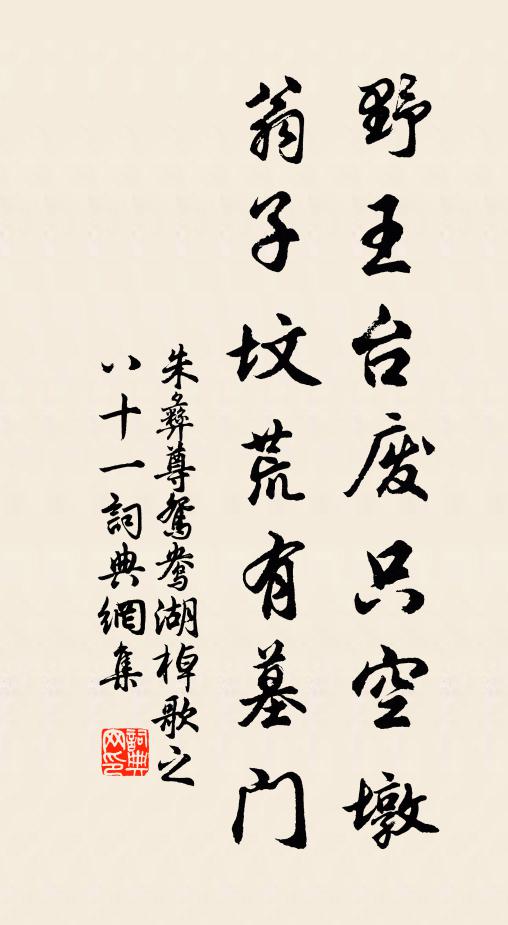 野王台废只空墩
翁子坟荒有墓门
朱彝尊鴛鴦湖棹歌之
八十一詞典網集
詞典網印